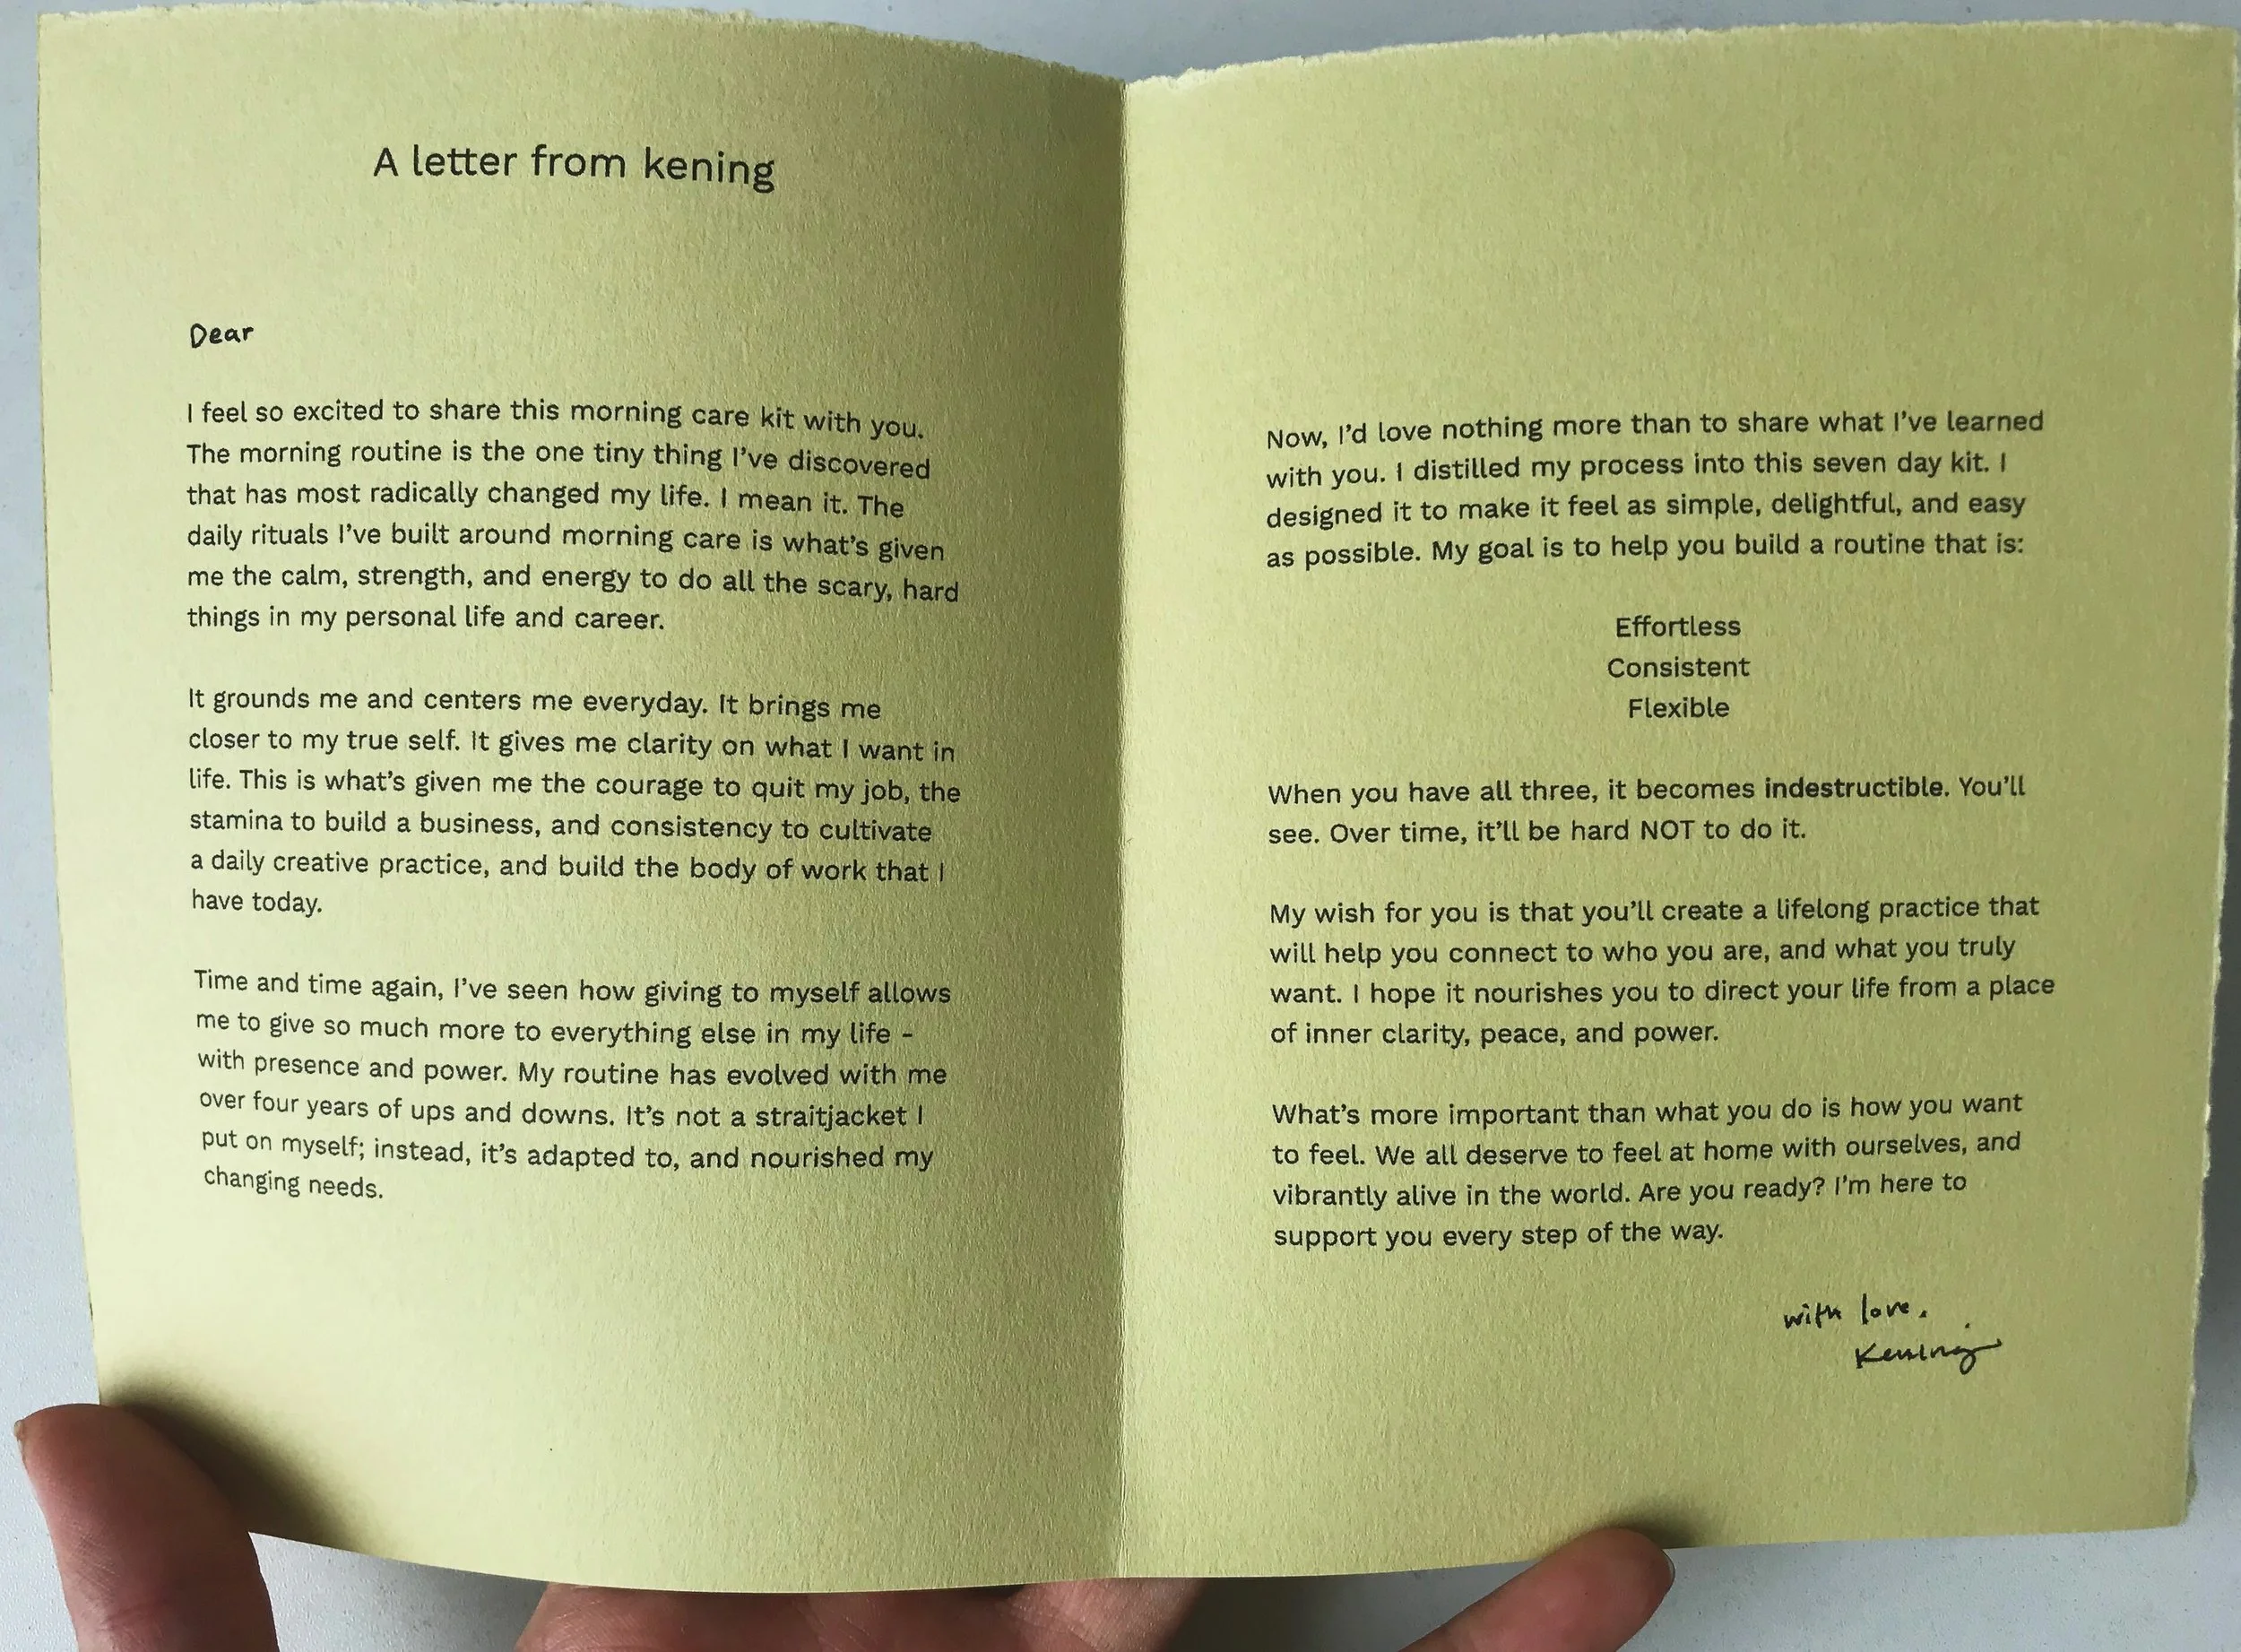 A letter from kening
Dear
I feel so excited to share this morning care kit with you.
The morning routine is the one tiny thing I've discovered
that has most radically changed my life. I mean it. The
daily rituals I've built around morning care is what's given
me the calm, strength, and energy to do all the scary, hard
things in my personal life and career.
It grounds me and centers me everyday. It brings me
closer to my true self. It gives me clarity on what I want in
life. This is what's given me the courage to quit my job, the
stamina to build a business, and consistency to cultivate
a daily creative practice, and build the body of work that I
have today.
Time and time again, I've seen how giving to myself allows
me to give so much more to everything else in my life -
with presence and power. My routine has evolved with me
over four years of ups and downs. It's not a straitjacket I
put on myself; instead, it's adapted to, and nourished my
changing needs.
Now, I'd love nothing more than to share what I've learned
with you. I distilled my process into this seven day kit. I
designed it to make it feel as simple, delightful, and easy
as possible. My goal is to help you build a routine that is:
Effortless
Consistent
Flexible
When you have all three, it becomes indestructible. You'll
see. Over time, it'll be hard NOT to do it.
My wish for you is that you'll create a lifelong practice that
will help you connect to who you are, and what you truly
want. I hope it nourishes you to direct your life from a place
of inner clarity, peace, and power.
What's more important than what you do is how you want
to feel. We all deserve to feel at home with ourselves, and
vibrantly alive in the world. Are you ready? I'm here to
support you every step of the way.
with love.
Kening